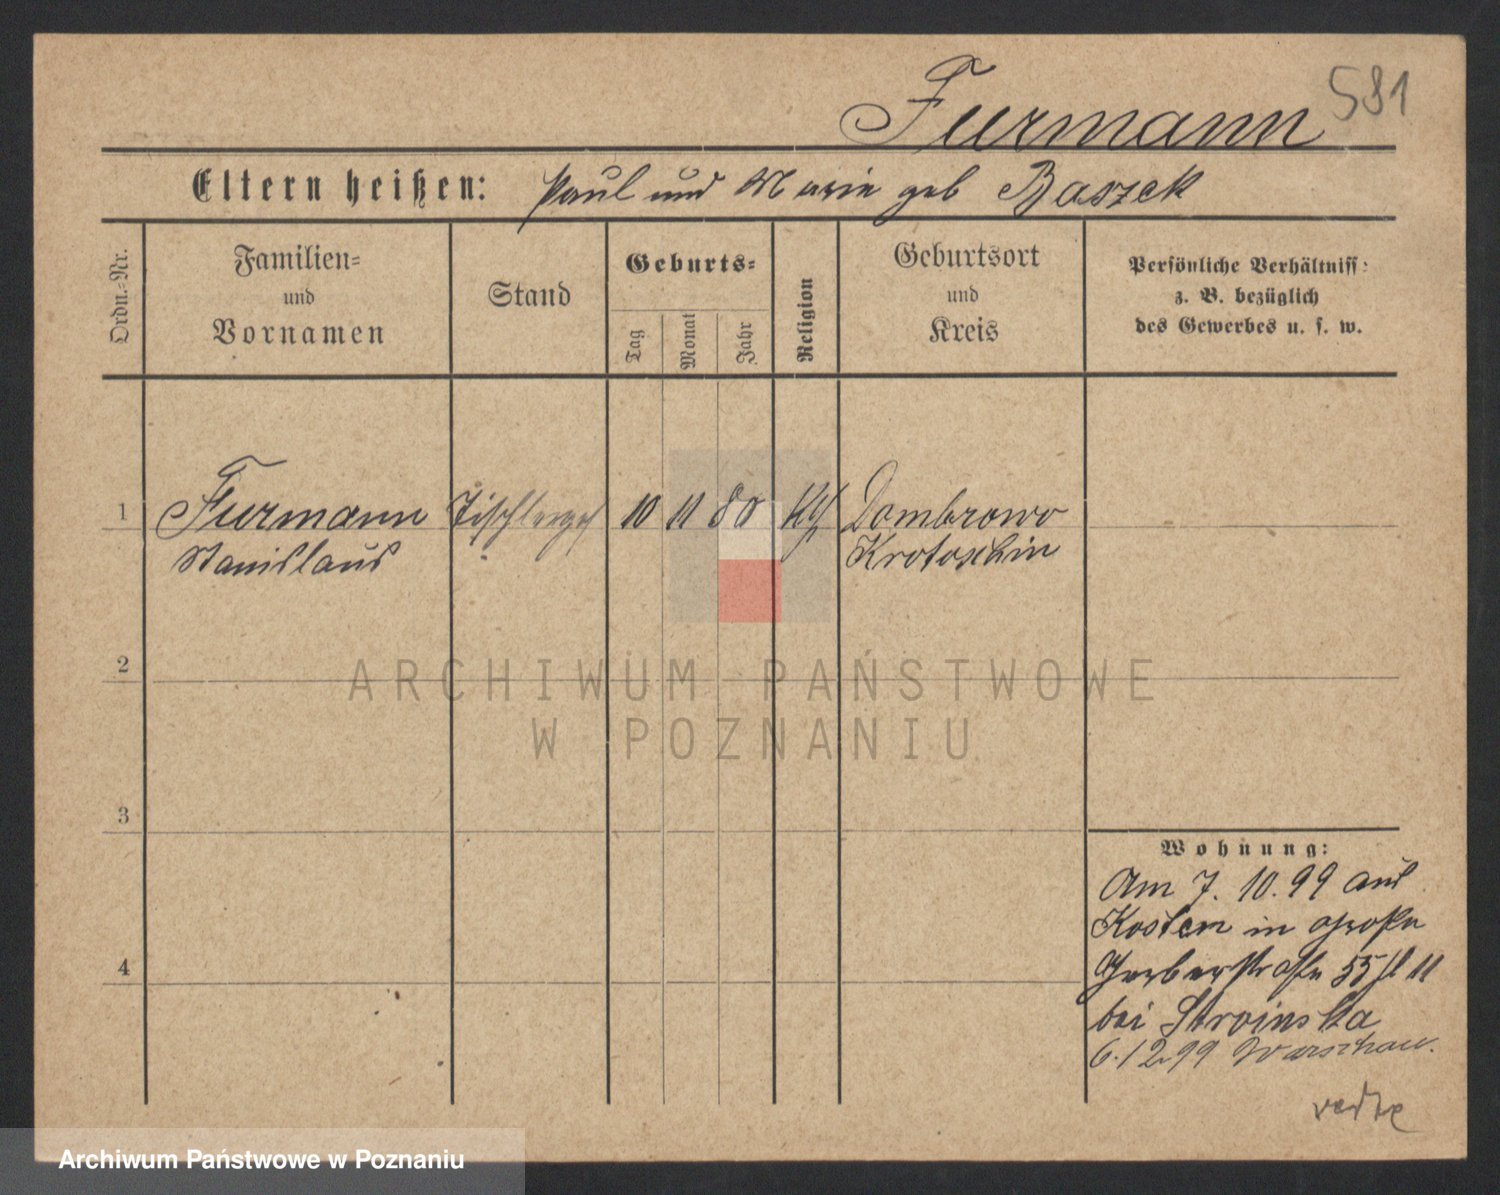 Furmann 581
Eltern heißen: Paul und Marie geb Baszek
Ordn.=Nr.
Familien=
und
Vornamen
Stand
Geburts=
Tag
Monat
Jahr
Religion
Geburtsort
und
Kreis
Persönliche Verhältniss:
z. B. bezüglich
des Gewerbes u. s. w.
1 Furmann Tischlerges 10 11 80 Dombrowo
Stanislaus Krotoschin
2
ARCHIWUM PAŃSTWOWE
W POZNANIU
3
Wohnung:
Am 7. 10. 99 aus
Kosten in große
4
Gerberstraße 55 11
bei Stroinska
6.12 99 Warschau.
Archiwum Państwowe w Poznaniu